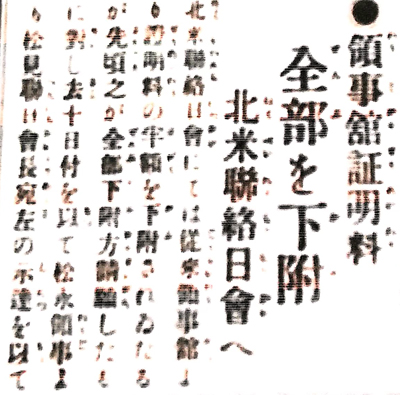 ●領事館証明料
全部を下附
北米聯絡日會へ
北米聯絡日會にては従来領事館よ
り證明料の半額を下附されゐたる
が先頃之が全部下附方請願したる
に對し去十日付を以て松永領事よ
り松見聯日會長宛左の示達を以て